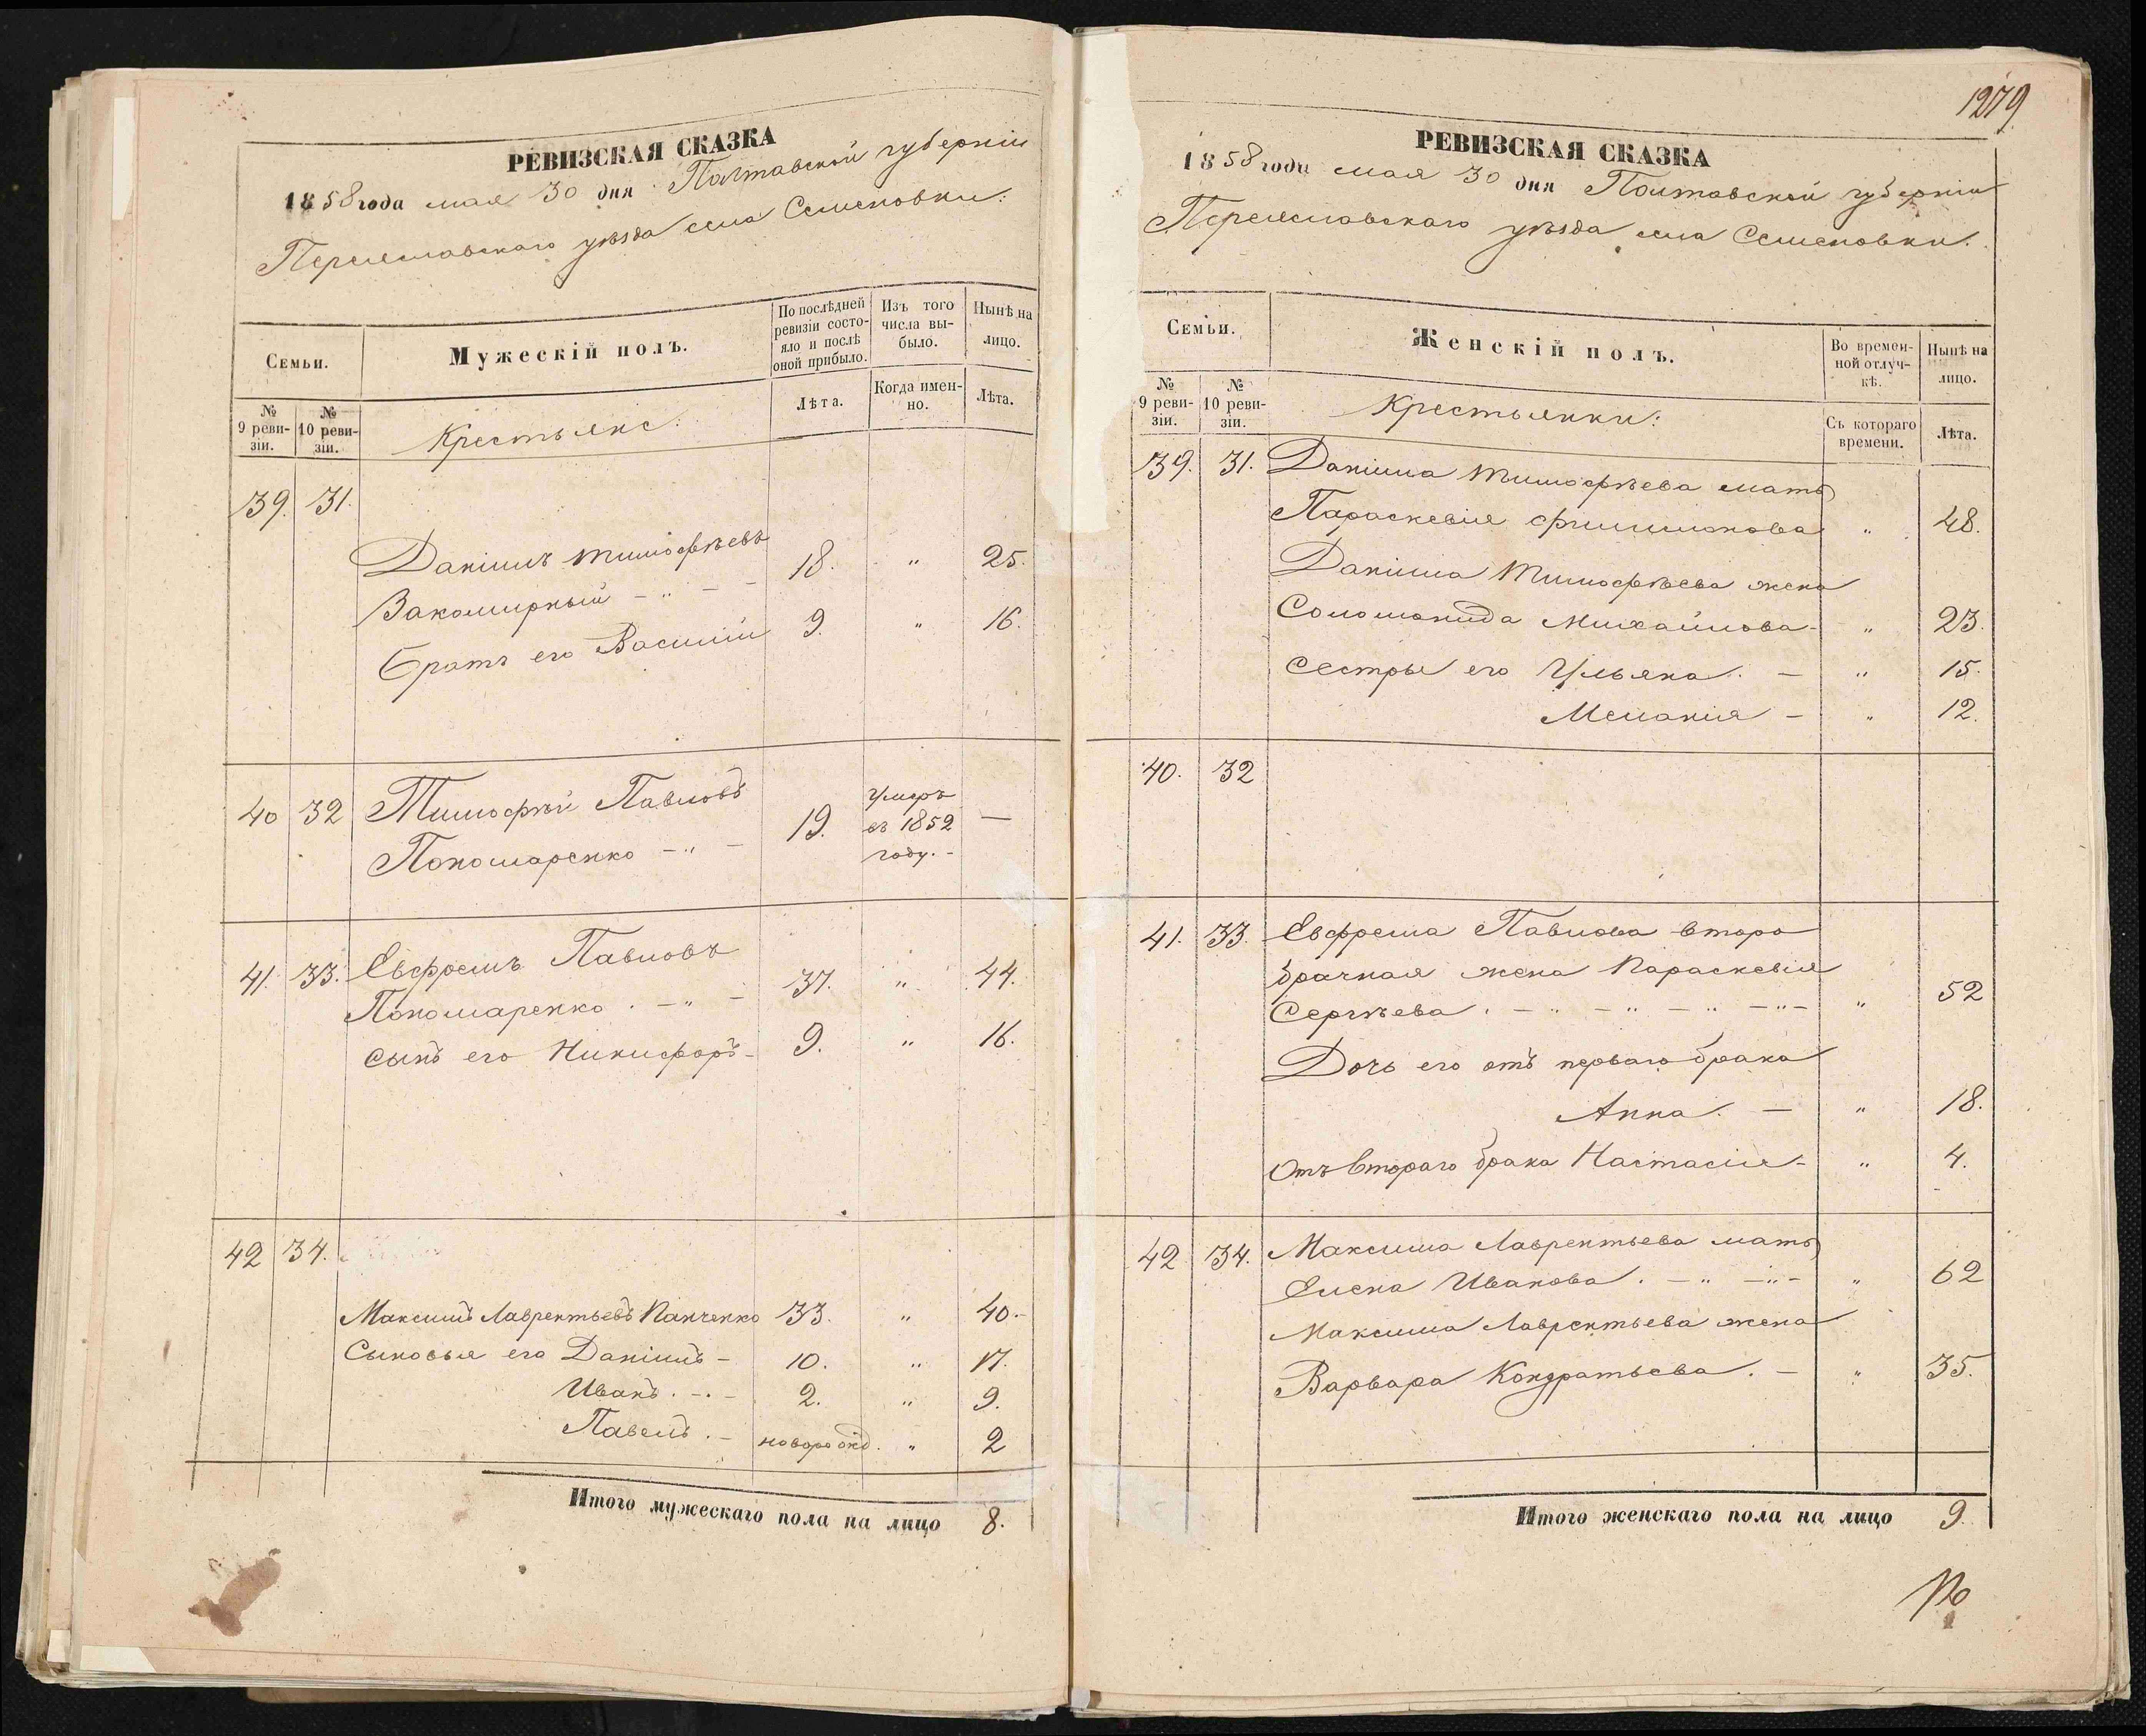 РЕВИЗСКАЯ СКАЗКА
1858 года мая 30 дня Полтавской губерніи
Переяславскаго уѣзда села Семеновки:
Семьи.
Мужескій полъ.
По послѣдней ревизіи состояло и послѣ оной прибыло.
Изъ того числа выбыло.
Нынѣ на лицо.
№ 9 ревизіи.
№ 10 ревизіи.
Крестьяне:
Лѣта.
Когда именно.
Лѣта.
39. 31.
Даніилъ Тимофѣевъ
Закомирный - " - 18. " 25.
Братъ его Василій 9. " 16.
40 32 Тимофѣй Павловъ
Пономаренко - " - 19. Умеръ въ 1852 году. - —
41. 33. Евфремъ Павловъ
Пономаренко . - " - 37. " 44.
Сынъ его Никифоръ - 9. " 16.
42 34.
Максимъ Лаврентьевъ Панченко 33. " 40. -
Сыновья его Даніилъ - 10. " 17.
Иванъ . - . - 2. " 9.
Павелъ . - новорожд. " 2
Итого мужескаго пола на лицо 8.
1279
РЕВИЗСКАЯ СКАЗКА
1858 года мая 30 дня Полтавской губерніи
Переяславскаго уѣзда села Семеновки.
Семьи.
Женскій полъ.
Во временной отлучкѣ.
Нынѣ на лицо.
№ 9 ревизіи.
№ 10 ревизіи.
Крестьянки:
Съ котораго времени.
Лѣта.
39. 31. Даніила Тимофѣева мать
Параскевія Филимонова " 48.
Даніила Тимофѣева жена
Соломонида Михайлова - " 23.
Сестры его Ульяна. — " 15.
Меланія - " 12.
40. 32
41. 33. Евфрема Павлова второ
брачная жена Параскевія
Сергѣева . - " - " - " - " - " 52
Дочь его отъ перваго брака
Анна. — " 18.
Отъ втораго брака Настасія - " 4.
42 34. Максима Лаврентьева мать
Елена Иванова . - " - " - " 62
Максима Лаврентьева жена
Варвара Кондратьева . - " 35.
Итого женскаго пола на лицо 9.